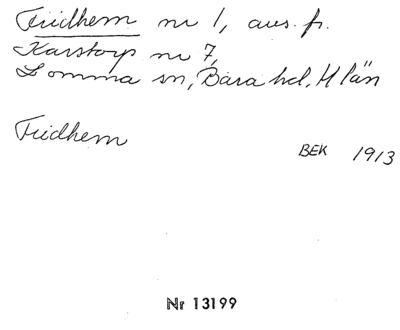 Fridhem nr 1, avs. fr.
Karstorp nr 7,
Lomma sn, Bara hd, M län
Fridhem
BEK 1913
Nr 13199